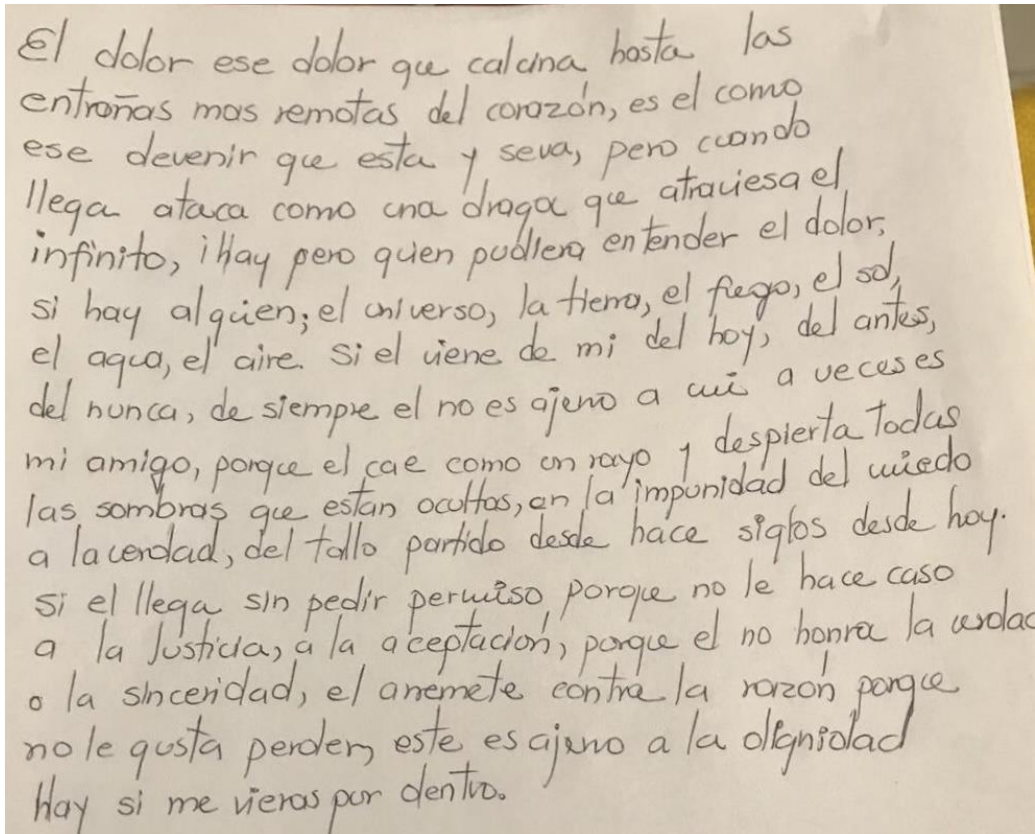 El dolor ese dolor que calcina hasta las
entrañas mas remotas del corazón, es el como
ese devenir que esta y seva, pero cuando
llega ataca como una draga que atraviesa el
infinito, ¡Hay pero quien pudiera entender el dolor,
si hay alguien; el universo, la tierra, el fuego, el sol,
el agua, el aire. Si el viene de mi del hoy, del antes,
del nunca, de siempre el no es ajeno a mi a veces es
mi amigo, porque el cae como un rayo y despierta todas
las sombras que estan ocultas, en la impunidad del miedo
a la verdad, del tallo partido desde hace siglos desde hoy.
Si el llega sin pedir permiso, porque no le hace caso
a la Justicia, a la aceptación, porque el no honra la verdad
o la sinceridad, el arremete contra la razón porque
no le gusta perder, este es ajeno a la dignidad
Hay si me vieras por dentro.